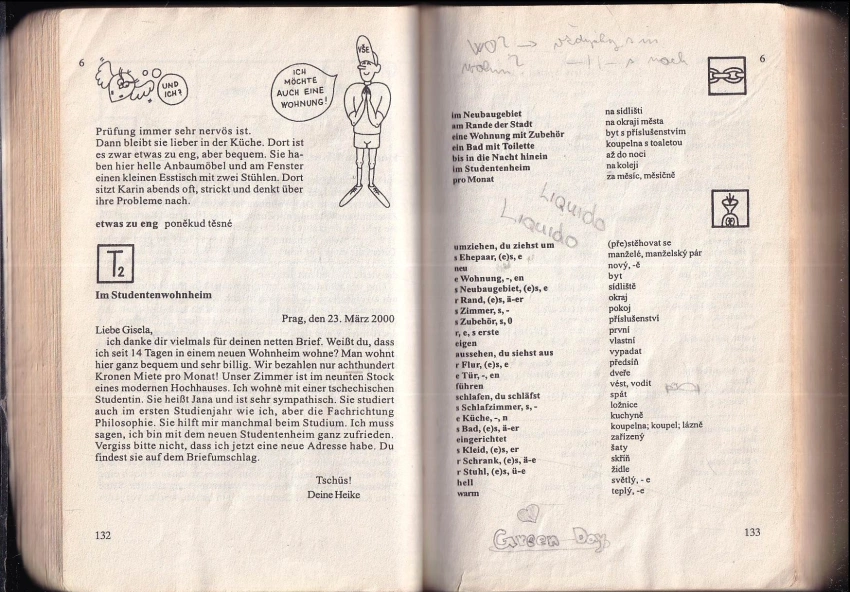 6
UND
ICH?
ICH
MÖCHTE
AUCH EINE
WOHNUNG!
VŠE
Prüfung immer sehr nervös ist.
Dann bleibt sie lieber in der Küche. Dort ist
es zwar etwas zu eng, aber bequem. Sie ha-
ben hier helle Anbaumöbel und am Fenster
einen kleinen Esstisch mit zwei Stühlen. Dort
sitzt Karin abends oft, strickt und denkt über
ihre Probleme nach.
etwas zu eng poněkud těsné
T2
Im Studentenwohnheim
Prag, den 23. März 2000
Liebe Gisela,
ich danke dir vielmals für deinen netten Brief. Weißt du, dass
ich seit 14 Tagen in einem neuen Wohnheim wohne? Man wohnt
hier ganz bequem und sehr billig. Wir bezahlen nur achthundert
Kronen Miete pro Monat! Unser Zimmer ist im neunten Stock
eines modernen Hochhauses. Ich wohne mit einer tschechischen
Studentin. Sie heißt Jana und ist sehr sympathisch. Sie studiert
auch im ersten Studienjahr wie ich, aber die Fachrichtung
Philosophie. Sie hilft mir manchmal beim Studium. Ich muss
sagen, ich bin mit dem neuen Studentenheim ganz zufrieden.
Vergiss bitte nicht, dass ich jetzt eine neue Adresse habe. Du
findest sie auf dem Briefumschlag.
Tschüs!
Deine Heike
132
wo? →
wohin? —||— s nach
6
im Neubaugebiet na sídlišti
am Rande der Stadt na okraji města
eine Wohnung mit Zubehör byt s příslušenstvím
ein Bad mit Toilette koupelna s toaletou
bis in die Nacht hinein až do noci
im Studentenheim na koleji
pro Monat za měsíc, měsíčně
Liquido
Liquido
umziehen, du ziehst um (pře)stěhovat se
s Ehepaar, (e)s, e manželé, manželský pár
neu nový, -ě
e Wohnung, -, en byt
s Neubaugebiet, (e)s, e sídliště
r Rand, (e)s, ä-er okraj
s Zimmer, s, - pokoj
s Zubehör, s, 0 příslušenství
r, e, s erste první
eigen vlastní
aussehen, du siehst aus vypadat
r Flur, (e)s, e předsíň
e Tür, -, en dveře
führen vést, vodit
schlafen, du schläfst spát
s Schlafzimmer, s, - ložnice
e Küche, -, n kuchyně
s Bad, (e)s, ä-er koupelna; koupel; lázně
eingerichtet zařízený
s Kleid, (e)s, er šaty
r Schrank, (e)s, ä-e skříň
r Stuhl, (e)s, ü-e židle
hell světlý, - e
warm teplý, -e
Green Day
133